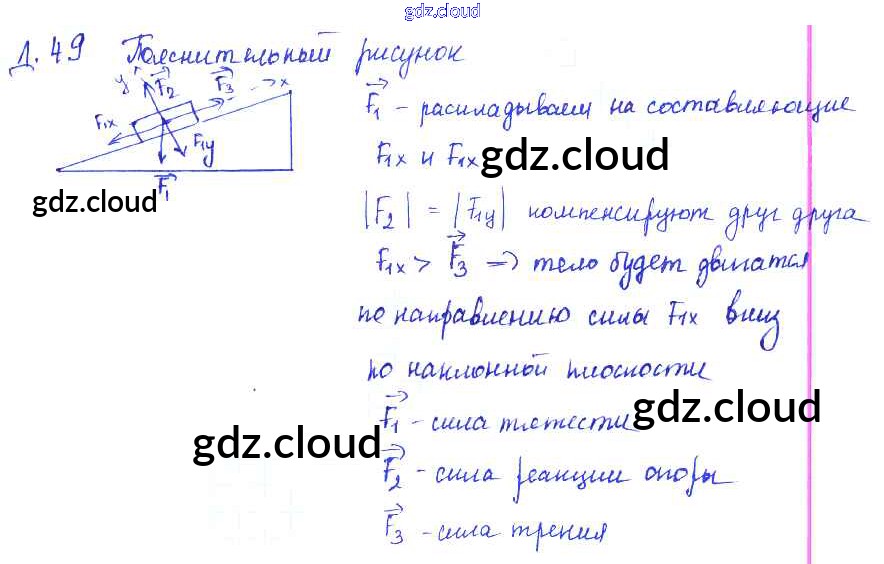 gdz.cloud
Д. 49 Пояснительный рисунок
y F₂ F₃ x
F₁x F₁y
F₁
gdz.cloud
F₁ - раскладываем на составляющие
F₁x и F₁x gdz.cloud
|F₂| = |F₁y| компенсируют друг друга
F₁x > F₃ => тело будет двигатся
по направлению силы F₁x вниз
по наклонной плоскости
gdz.cloud
F₁ - сила тяжести
gdz.cloud
F₂ - сила реакции опоры
F₃ - сила трения